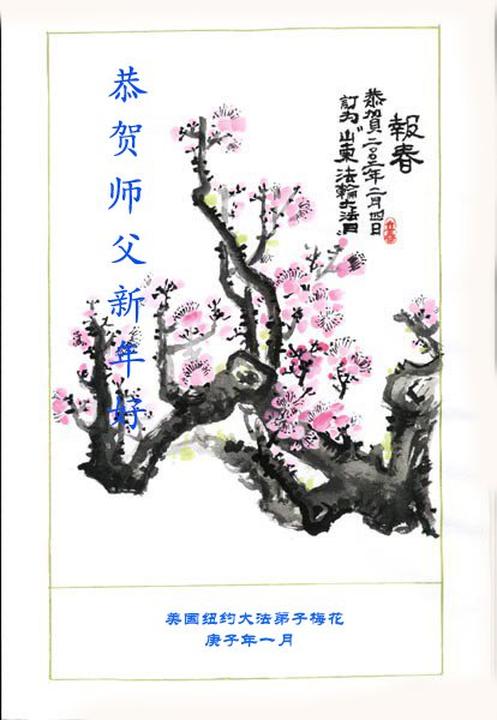 恭贺师父新年好
報春
恭賀二〇〇二年二月四日
訂为“山東法輪大法日”
美国纽约大法弟子梅花
庚子年一月